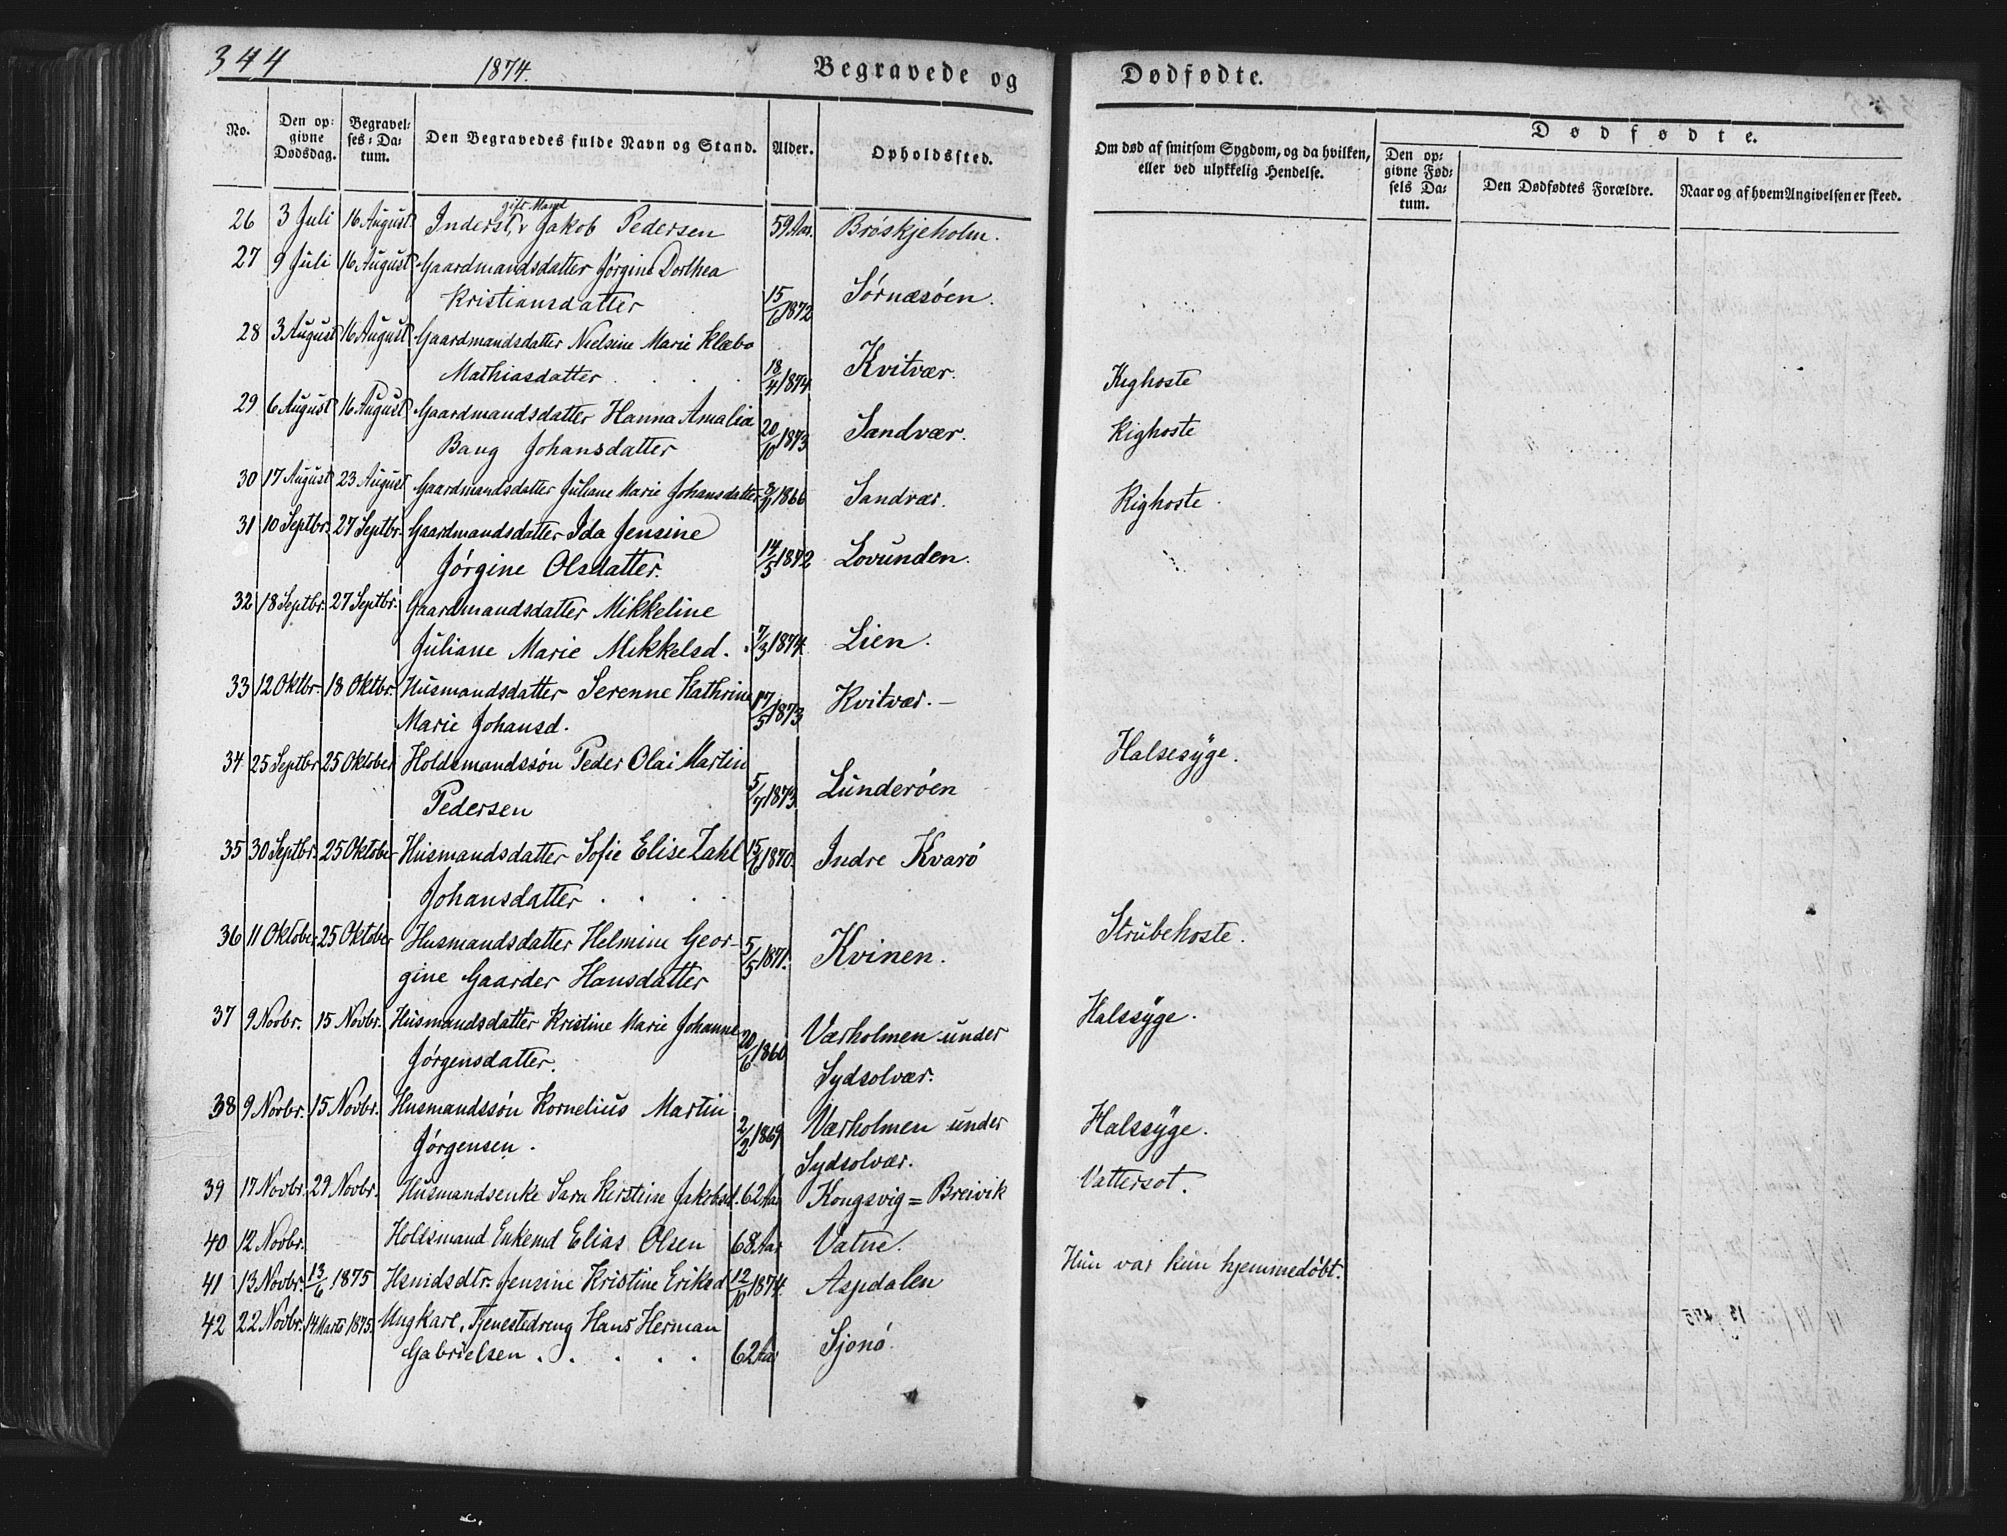 344
1874.
Begravede og
Dødfødte.
No.
Den opgivne Dødsdag.
Begravelses-Datum.
Den Begravedes fulde Navn og Stand.
Alder.
Opholdssted.
Om død af smitsom Sygdom, og da hvilken, eller ved ulykkelig Hendelse.
Dødfødte.
Den opgivne Fødsels Datum.
Den Dødfødtes Forældre.
Naar og af hvem Angivelsen er skeed.
gift Mand
26 3 Juli 16 August Inderst, Jakob Pedersen 59 Aar. Brøskjeholm.
27 9 Juli 16 August Gaardmandsdatter Jørgine Dorthea
Kristiansdatter 15/6 1872 Sørnæsøen.
28 3 August 16 August Gaardmandsdatter Nielsine Marie Klæbo
Mathiasdatter 18/4 1874 Kvitvær. Kighoste
29 6 August 16 August Gaardmandsdatter Hanna Amalia
Bang Johansdatter 20/10 1873 Sandvær. Kighoste
30 17 August 23 August Gaardmandsdatter Juliane Marie Johansdatter 1866 Sandvær. Kighoste
31 10 Septbr. 27 Septbr. Gaardmandsdatter Ida Jensine
Jørgine Olsdatter. 14/5 1872 Lovunden.
32 18 Septbr. 27 Septbr. Gaardmandsdatter Mikkeline
Juliane Marie Mikkelsd. 7/3 1874. Lien.
33 12 Oktbr. 18 Oktbr. Husmandsdatter Serenne Kathrine
Marie Johansd. 17/5 1873 Kvitvær.
34 25 Septbr 25 Oktober Holdsmandssøn Peder Olai Martin
Pedersen 5/7 1873 Lunderøen Halsesyge.
35 30 Septbr. 25 Oktober Husmandsdatter Sofie Elise Zahl
Johansdatter 15/6 1870. Indre Kvarø
36 11 Oktober 25 Oktober Husmandsdatter Helmine Geor-
gine Gaarder Hansdatter 5/5 1871. Kvinen. Strubehoste.
37 9 Novbr. 15 Novbr. Husmandsdatter Kristine Marie Johanne
Jørgensdatter. 20/6 1860 Værholmen under
Sydsolvær. Halssyge.
38 9 Novbr. 15 Novbr. Husmandssøn Kornelius Martin
Jørgensen. 2/2 1869 Værholmen under
Sydsolvær. Halssyge.
39 17 Novbr. 29 Novbr. Husmandsenke Sara Kirstine Jakobsd. 62 Aar Kongsvig = Breivik Vattersot.
40 12 Novbr. Holdsmand Enkemd Elias Olsen 68 Aar Vatne.
41 13 Novbr. 13/6 1875 Hsmdsdtr. Jensine Kristine Eriksd 12/10 1874. Aspdalen Hun var kun hjemmedøbt.
42 22 Novbr. 14 Marts 1875. Ungkarl, Tjenestedreng Hans Herman
Gabrielsen 62 Aar Sjonø.